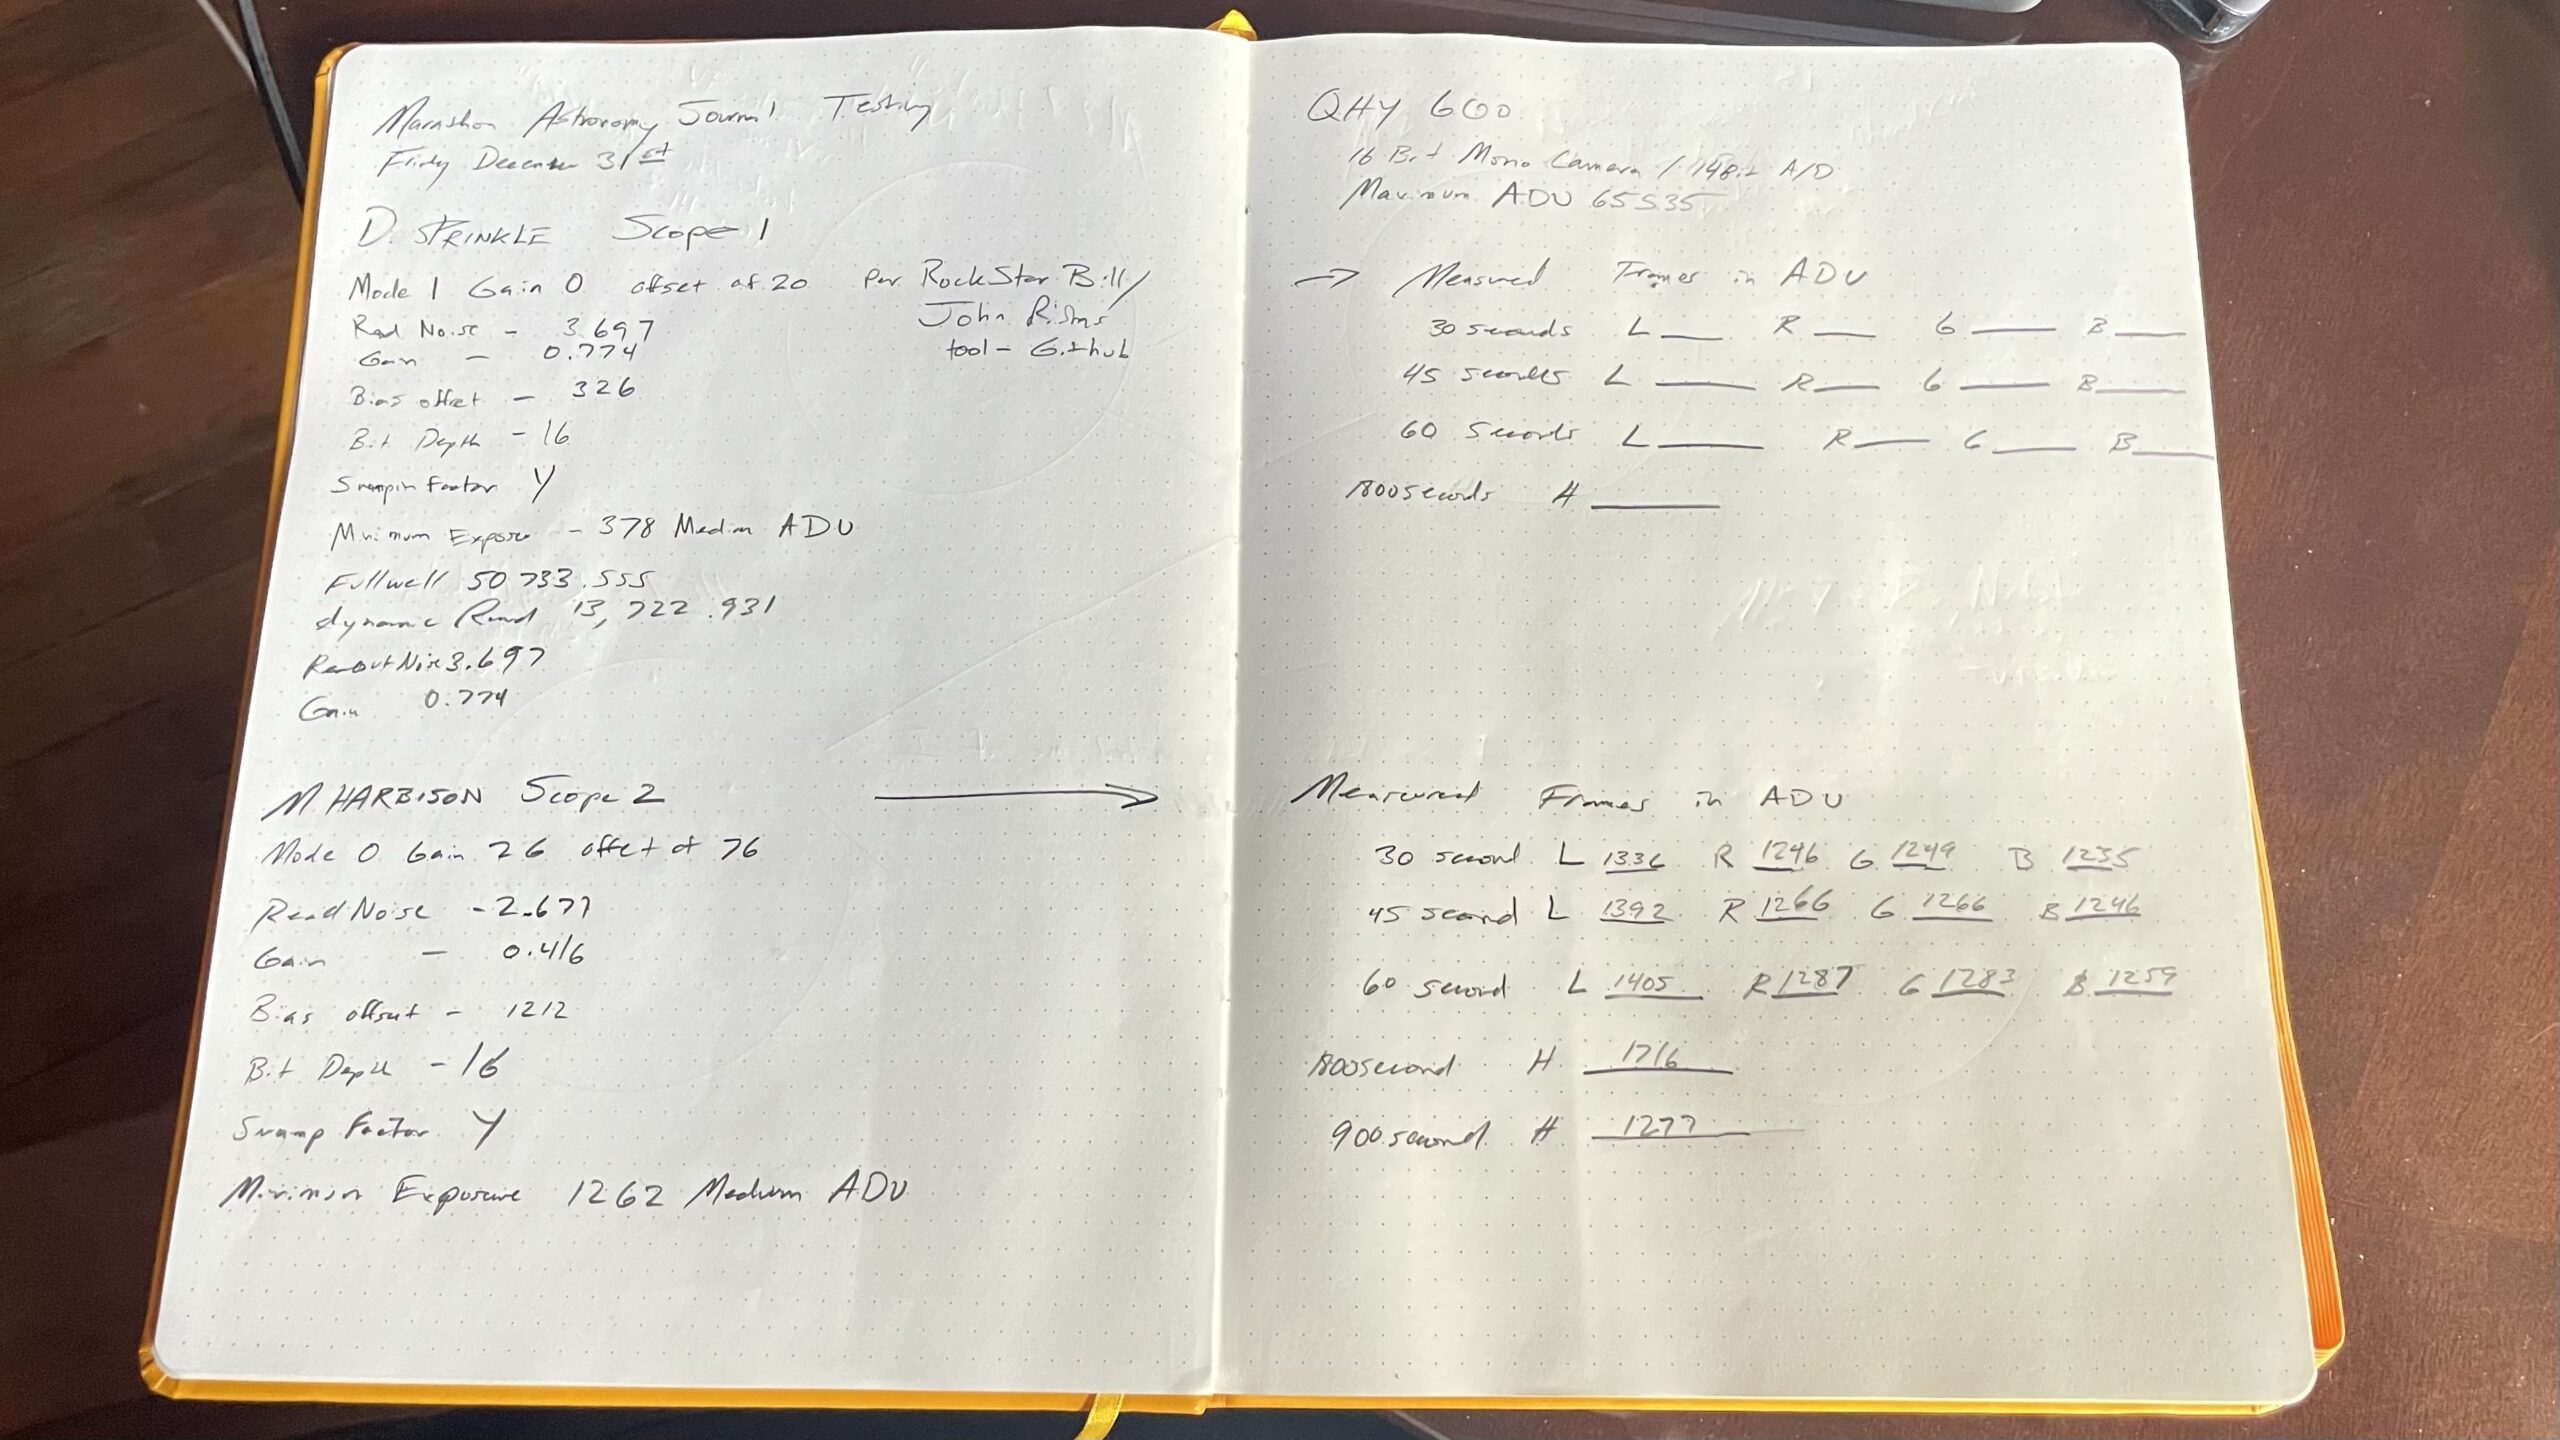 Marathon Astronomy Journal Testing
Friday December 31st
D. SPRINKLE Scope 1
Mode 1 Gain 0 offset of 20 per RockStar Bill/
John Rista's
tool - Github
Read Noise - 3.697
Gain - 0.774
Bias offset - 326
Bit Depth - 16
Factor Y
Minimum Exposure - 378 Median ADU
Fullwell 50733.555
dynamic 13,722.931
Readout Noise 3.697
Gain 0.774
M HARBISON Scope 2
Mode 0 Gain 26 offset of 76
Read Noise - 2.677
Gain - 0.416
Bias offset - 1212
Bit Depth - 16
Swamp Factor Y
Minimum Exposure 1262 Medium ADU
QHY 600
16 Bit Mono Camera / A/D
Maximum ADU 65535
→ Measured Frames in ADU
30 seconds L ___ R ___ G ___ B ___
45 seconds L ___ R ___ G ___ B ___
60 Seconds L ___ R ___ G ___ B ___
1800 seconds H ___
Measured Frames in ADU
30 second L 1336 R 1246 G 1249 B 1235
45 second L 1392 R 1266 G 1266 B 1246
60 second L 1405 R 1287 G 1283 B 1259
1800 second H 1716
900 second H 1277